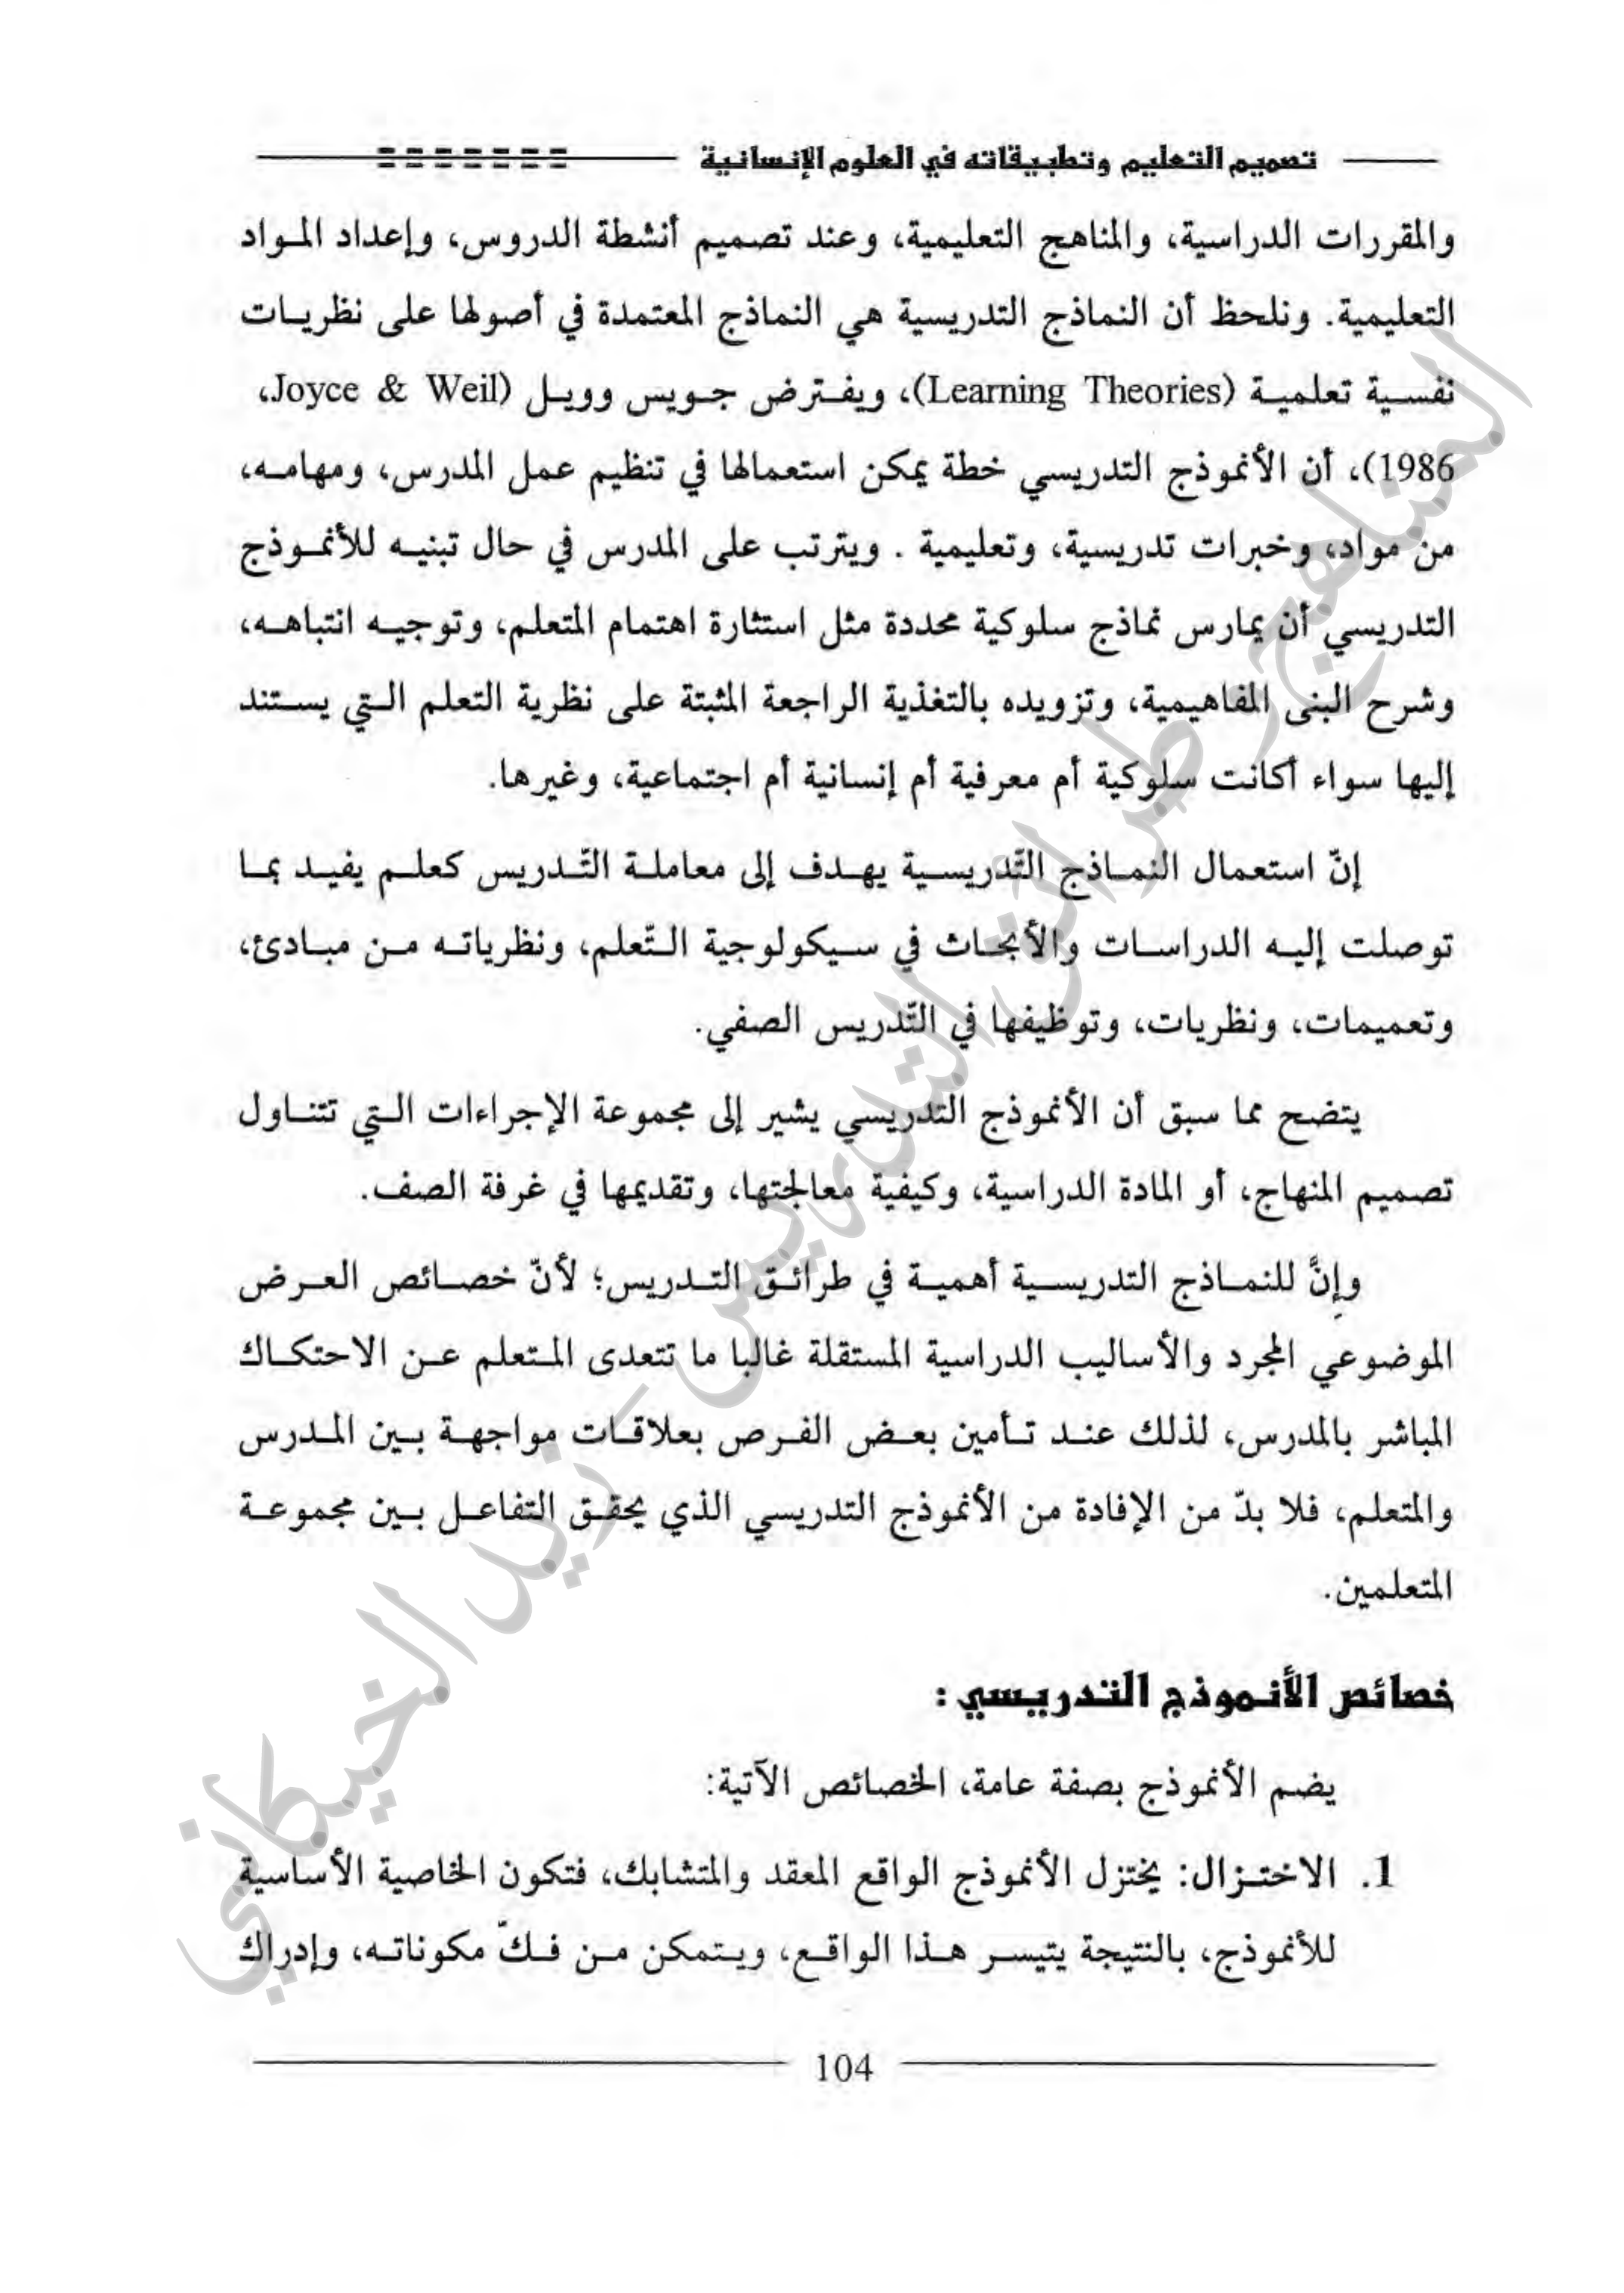 تصميم التعليم وتطبيقاته في العلوم الإنسانية
والمقررات الدراسية، والمناهج التعليمية، وعند تصميم أنشطة الدروس، وإعداد المواد
التعليمية. ونلحظ أن النماذج التدريسية هي النماذج المعتمدة في أصولها على نظريات
نفسية تعلمية (Learning Theories)، ويفترض جويس وويل (Joyce & Weil،
1986)، أن الأنموذج التدريسي خطة يمكن استعمالها في تنظيم عمل المدرس، ومهامه،
من مواد، وخبرات تدريسية، وتعليمية . ويترتب على المدرس في حال تبنيه للأنموذج
التدريسي أن يمارس نماذج سلوكية محددة مثل استثارة اهتمام المتعلم، وتوجيه انتباهه،
وشرح البنى المفاهيمية، وتزويده بالتغذية الراجعة المثبتة على نظرية التعلم التي يستند
إليها سواء أكانت سلوكية أم معرفية أم إنسانية أم اجتماعية، وغيرها.
إنّ استعمال النماذج التّدريسية يهدف إلى معاملة التّدريس كعلم يفيد بما
توصلت إليه الدراسات والأبحاث في سيكولوجية التّعلم، ونظرياته من مبادئ،
وتعميمات، ونظريات، وتوظيفها في التّدريس الصفي.
يتضح مما سبق أن الأنموذج التدريسي يشير إلى مجموعة الإجراءات التي تتناول
تصميم المنهاج، أو المادة الدراسية، وكيفية معالجتها، وتقديمها في غرفة الصف.
وإنَّ للنماذج التدريسية أهمية في طرائق التدريس؛ لأنّ خصائص العرض
الموضوعي المجرد والأساليب الدراسية المستقلة غالبا ما تتعدى المتعلم عن الاحتكاك
المباشر بالمدرس، لذلك عند تأمين بعض الفرص بعلاقات مواجهة بين المدرس
والمتعلم، فلا بدّ من الإفادة من الأنموذج التدريسي الذي يحقق التفاعل بين مجموعة
المتعلمين.
خصائص الأنموذج التدريسي :
يضم الأنموذج بصفة عامة، الخصائص الآتية:
1. الاختزال: يختزل الأنموذج الواقع المعقد والمتشابك، فتكون الخاصية الأساسية
للأنموذج، بالنتيجة يتيسر هذا الواقع، ويتمكن من فكّ مكوناته، وإدراك
104
المناهج وطرائق التدريس - زيد الخيكاني